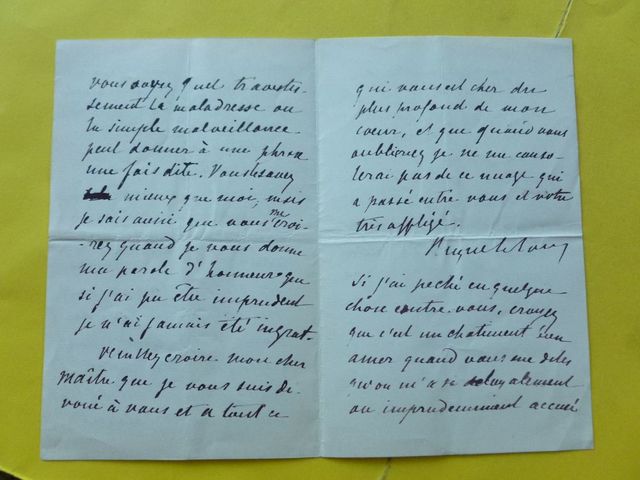 vous savez quel travestis-
sement la maladresse ou
la simple malveillance
peut donner à une phrase
une fois dite. Vous savez
mieux que moi, mais
je sais aussi que vous me croi-
rez quand je vous donne
ma parole d'honneur que
si j'ai pu être imprudent
je n'ai jamais été ingrat.
Veuillez croire mon cher
maître que je vous suis dé-
voué à vous et à tout ce
qui vous est cher du
plus profond de mon
coeur, et que quand vous
oublierez je ne me conso-
lerai pas de ce nuage qui
a passé entre vous et votre
très affligé.
Si j'ai péché en quelque
chose contre vous, croyez
que c'est un châtiment bien
amer quand vous me dites
qu'on m'a si déloyalement
ou imprudemment accusé